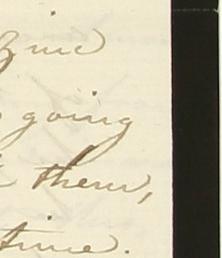 going
them,
time.